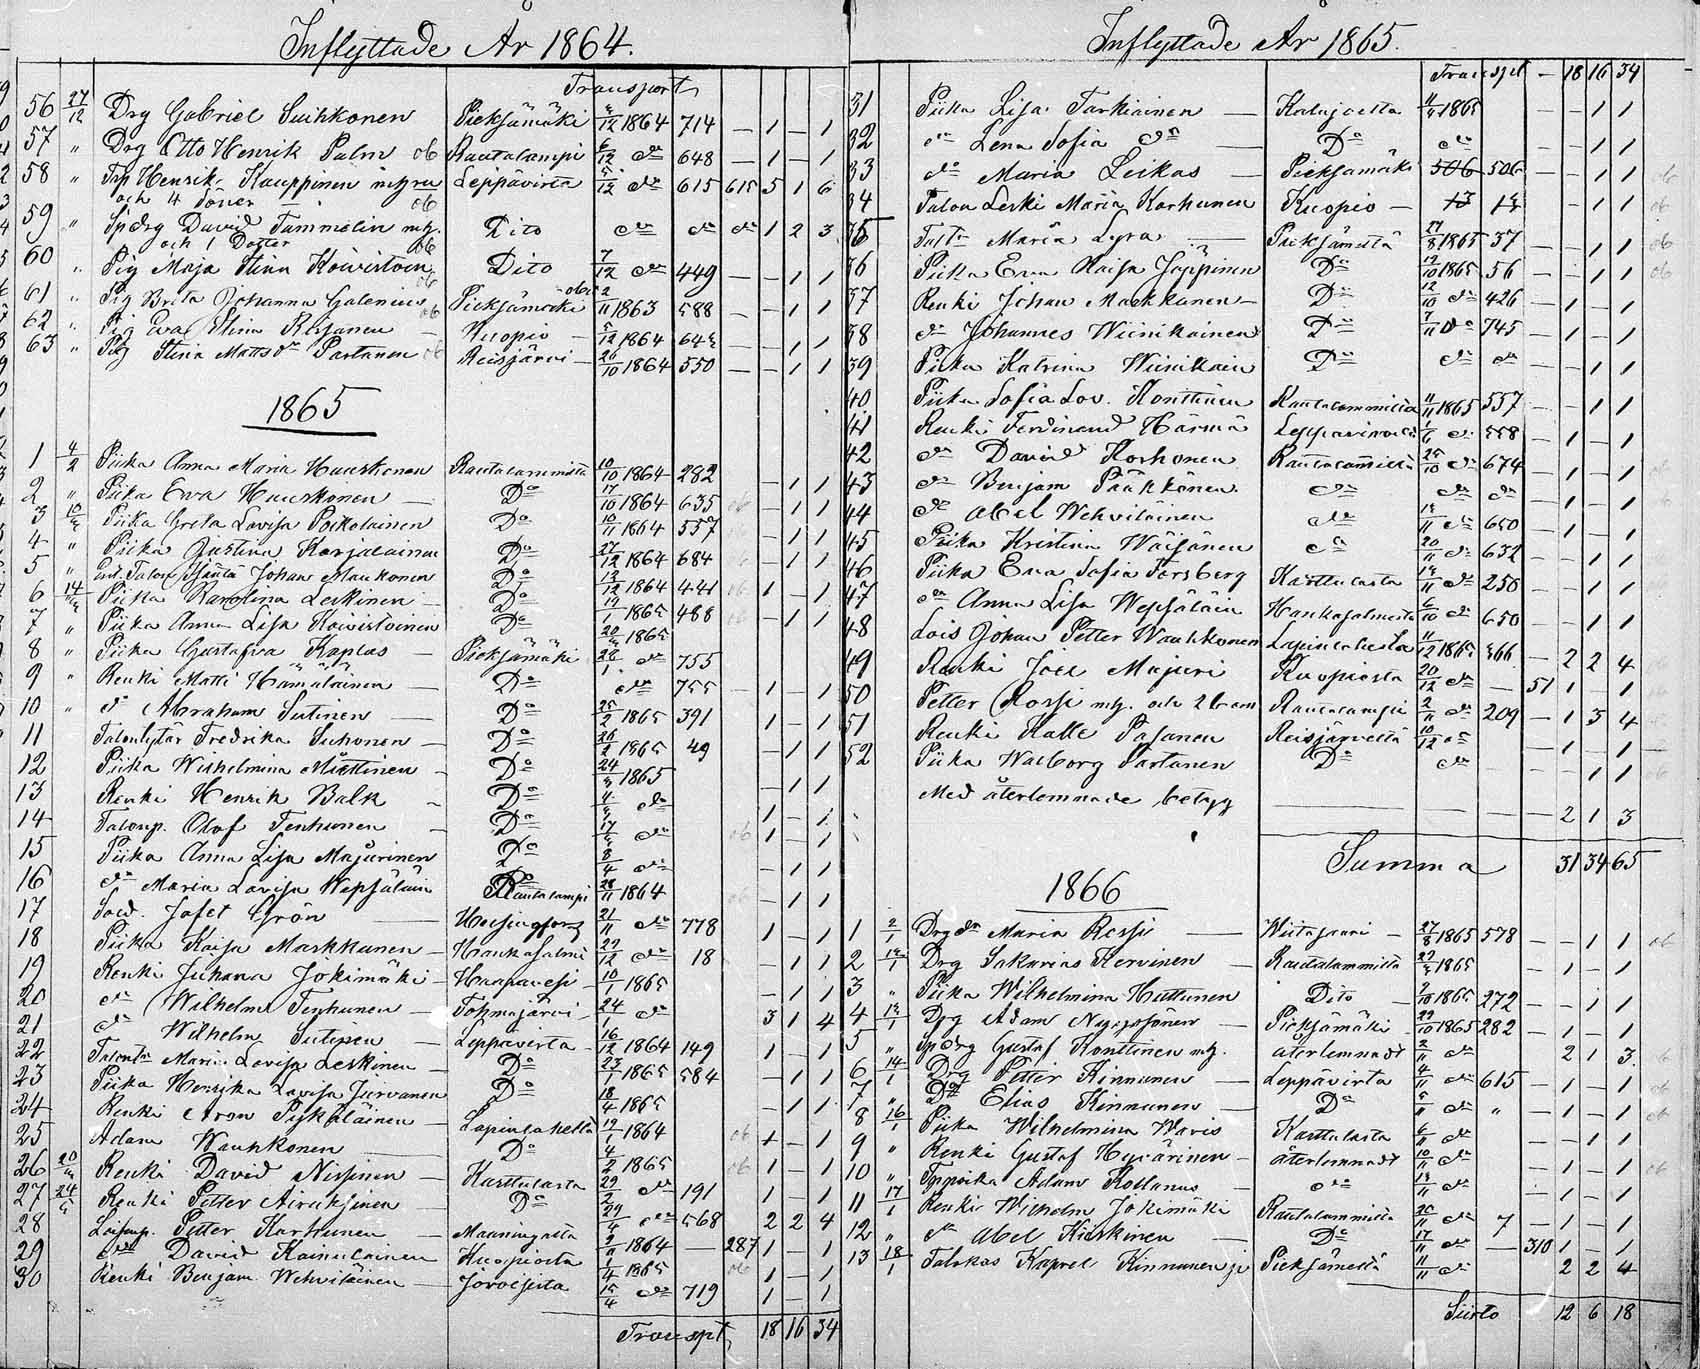 Inflyttade År 1864.
Transport
56 27/12 Drg Gabriel Suihkonen Pieksämäki /12 1864 714 — 1 — 1
57 " Drg Otto Henrik Palm ob Rautalampi 6/12 do 648 — 1 — 1
58 " Henrik Kauppinen Leppävirta 5/12 do 615 615 5 1 6
och 4 söner ob
59 " Spdrg David Tammelin m. h. Dito do do do 1 2 3
och 1 Dotter ob
60 " Pig Maja Stina Koivistoinen ob Dito 7/12 do 449 — — 1 1
61 " Pig Brita Johanna Galenius ob Pieksämäki 2/11 1863 588 — — 1 1
62 " Pig Eva Stina — Kuopio — 5/12 1864 — — 1 1
63 " Pig Stina Mattsdr Partanen ob Reisjärvi — 26/10 1864 550 — — 1 1
1865
1 4/2 Piika Anna Maria Hauskonen Rautalammista 10/10 1864 282 — 1 1
2 " Piika Ewa Hauskonen — Do 17/10 1864 635 ob — 1 1
3 Piika Greta Lovisa Poikolainen Do 10/11 1864 557 — 1 1
4 " Piika Justina Karjalainen Do 27/12 1864 684 ob — 1 1
5 " Talon Johan Maukonen Do 12/12 1864 441 ob 1 — 1
6 Piika Karolina Leskinen — Do 19/1 1865 488 ob — 1 1
7 " Piika Anna Lisa Kowistoinen Do 1865 — 1 1
8 " Piika Gustafva Kaplas — Pieksämäki do 755 — 1 1
9 " Renki Matti Hämäläinen — Do do 755 — 1 — 1
10 " d. Abraham Sutinen — Do 25/2 1865 391 1 — 1
11 Talontytär Fredrika Suhonen — Do 26/2 1865 49 — 1 1
12 Piika Wilhelmina Miettinen — Do 24/ 1865 — 1 1
13 Renki Henrik Balk — Do do 1 — 1
14 Talonp. Olof Tenhunen — Do 17/ do ob 1 — 1
15 Piika Anna Lisa Majurinen Do 8/4 do — 1 1
16 do Maria Lovisa Wepsäläin Rautalampi 28/11 1864 ob — 1 1
17 Sold. Jafet Grön — Helsingfors 21/11 do 778 1 — 1
18 Piika Kaisa Markkanen — Hankasalmi 29/12 do 18 — 1 1
19 Renki Juhana Jokimäki — Haapavesi 10/1 1865
20 do Wilhelm Tenhunen — Tohmajärvi — 24/1 do 3 1 4
21 do Wilhelm Sutinen — Leppävirta — 16/12 1864 149 1 — 1
22 Talontr Maria Lovisa Leskinen — Do 23/1 1865 584 — 1 1
23 Piika Henrika Lovisa Järvanen Do 18/4 1865 — 1 1
24 Renki Aron Pykäläinen — Lapinlahella 19/1 1864 ob 1 — 1
25 Adam Wauhkonen Do 4/2 1865 ob 1 — 1
26 20/ Renki David Nissinen — Karttulasta 29/2 do 191 1 — 1
27 24/ Renki Petter Airaksinen — Do 29/ do 568 2 2 4
28 Petter Karhunen — Maaningalta 1864 — 287 1 1
29 do David Kainulainen Kuopiosta 1/4 1865 ob 1 — 1
30 Renki Benjam. Wehviläinen — Joroisista 15/4 do 719 1 — 1
Transpt 18 16 34
Inflyttade År 1865.
Transpt — 18 16 34
31 Piika Lisa Tarkiainen — Kalajoelta 1865 — — 1 1
32 do Lena Sofia do — Do do — — 1 1
33 do Maria Leikas — Pieksämäki 506 506 — — 1 1 ob
34 Talon Leski Maria Korhonen Kuopio — 13 — — 1 1 ob
35 Maria Lyra — Pieksämältä 27/8 1865 37 — — 1 1 ob
36 Piika Ewa Kaisa Jäppinen Do 19/10 1865 56 — — 1 1 ob
37 Renki Johan Markkanen — Do 12/10 do 426 — 1 — 1
38 do Johannes Wiinikainen Do 7/11 do 745 — 1 — 1
39 Piika Katrina Wiinikain Do do do — — 1 1
40 Piika Sofia Lov. Konttinen Rautalammilta 11/11 1865 557 — — 1 1
41 Renki Ferdinand Härmä Leppävirralta do 558 — 1 — 1
42 do David Korhonen Rautalammilta 25/10 do 674 — 1 — 1
43 do Benjam Pääkkönen do do do — 1 — 1
44 do Abel Wehviläinen do /11 do 650 — 1 — 1
45 Piika Kristina Wäisänen do 20/11 do 632 — — 1 1
46 Piika Eva Sofia Forsberg Karttulasta /11 do 250 — — 1 1
47 do Anna Lisa Wepsäläin Hankasalmesta 6/10 do 650 — — 1 1
48 Lois Johan Petter Wauhkonen Lapinlahesta 11/12 1865 — 2 2 4
49 Renki Joel Majuri Kuopiosta 20/12 do — 51 1 — 1
50 Petter Rossi m. h. och 2 barn Rautalampi 2/11 do 209 — 1 3 4
51 Renki Kalle Pasanen Reisjärveltä 10/12 do — 1 — 1
52 Piika Walborg Partanen Do do — — 1 1
Med återlemnade betyg — — — 2 1 3
Summa 31 34 65
1866
1 2/1 Drgdr Maria Rossi — Wiitasaari — 27/8 1865 578 — — 1 1 ob
2 Drg Sakarias Kervinen — Rautalammilta 1865 — 1 — 1
3 " Piika Wilhelmina Huttunen Dito — 2/10 1865 272 — — 1 1
4 Drg Adam Nyyssönen — Pieksämäki 29/10 1865 282 — 1 — 1
5 " Spdrg Gustaf Konttinen m. h. återlemnadt 2/11 do 2 1 3
6 14/1 Drg Petter Kinnunen — Leppävirta 4/11 do 615 — 1 — 1
7 " Do Elias Kinnunen — Do 5/11 do " — 1 — 1
8 16/1 Piika Wilhelmina Waris Karttulasta 6/11 do — — 1 1
9 " Renki Gustaf Hyvärinen — återlemnadt 10/11 do — 1 — 1
10 " Adam Rossanus — do /11 do — 1 — 1
11 17/1 Renki Wilhelm Jokimäki Rautalammilta /11 do 7 — 1 — 1
12 " do Abel Kinkinen — Do 17/11 do — 310 1 — 1
13 18/1 Kaprel Kinnunen Pieksämältä 11/11 do 2 2 4
Siirto 12 6 18